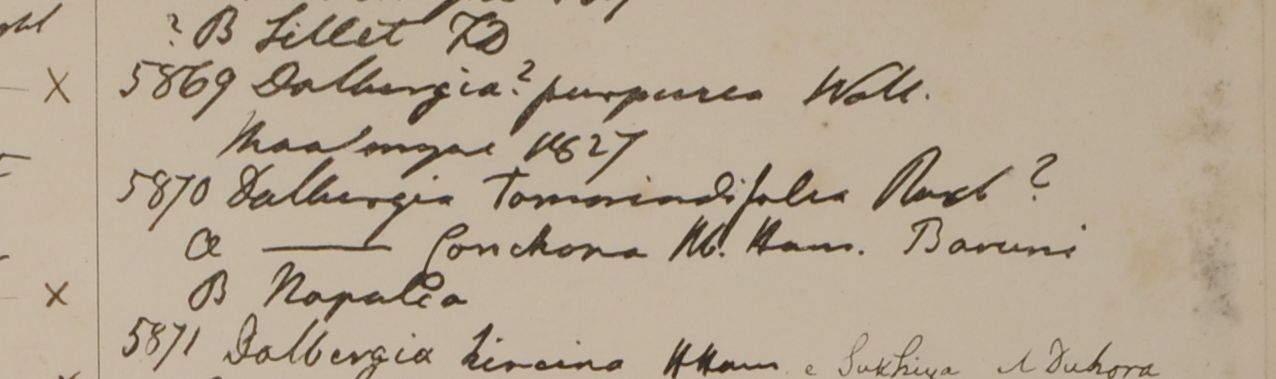 ? B Sillet FD
5869 Dalbergia? purpurea Wall.
1827
5870 Dalbergia tamarindifolia Roxb?
a — Conchona H. Ham. Baruni
B Napalia
5871 Dalbergia hircina HHam e Sukhiya & Duhora
X
X